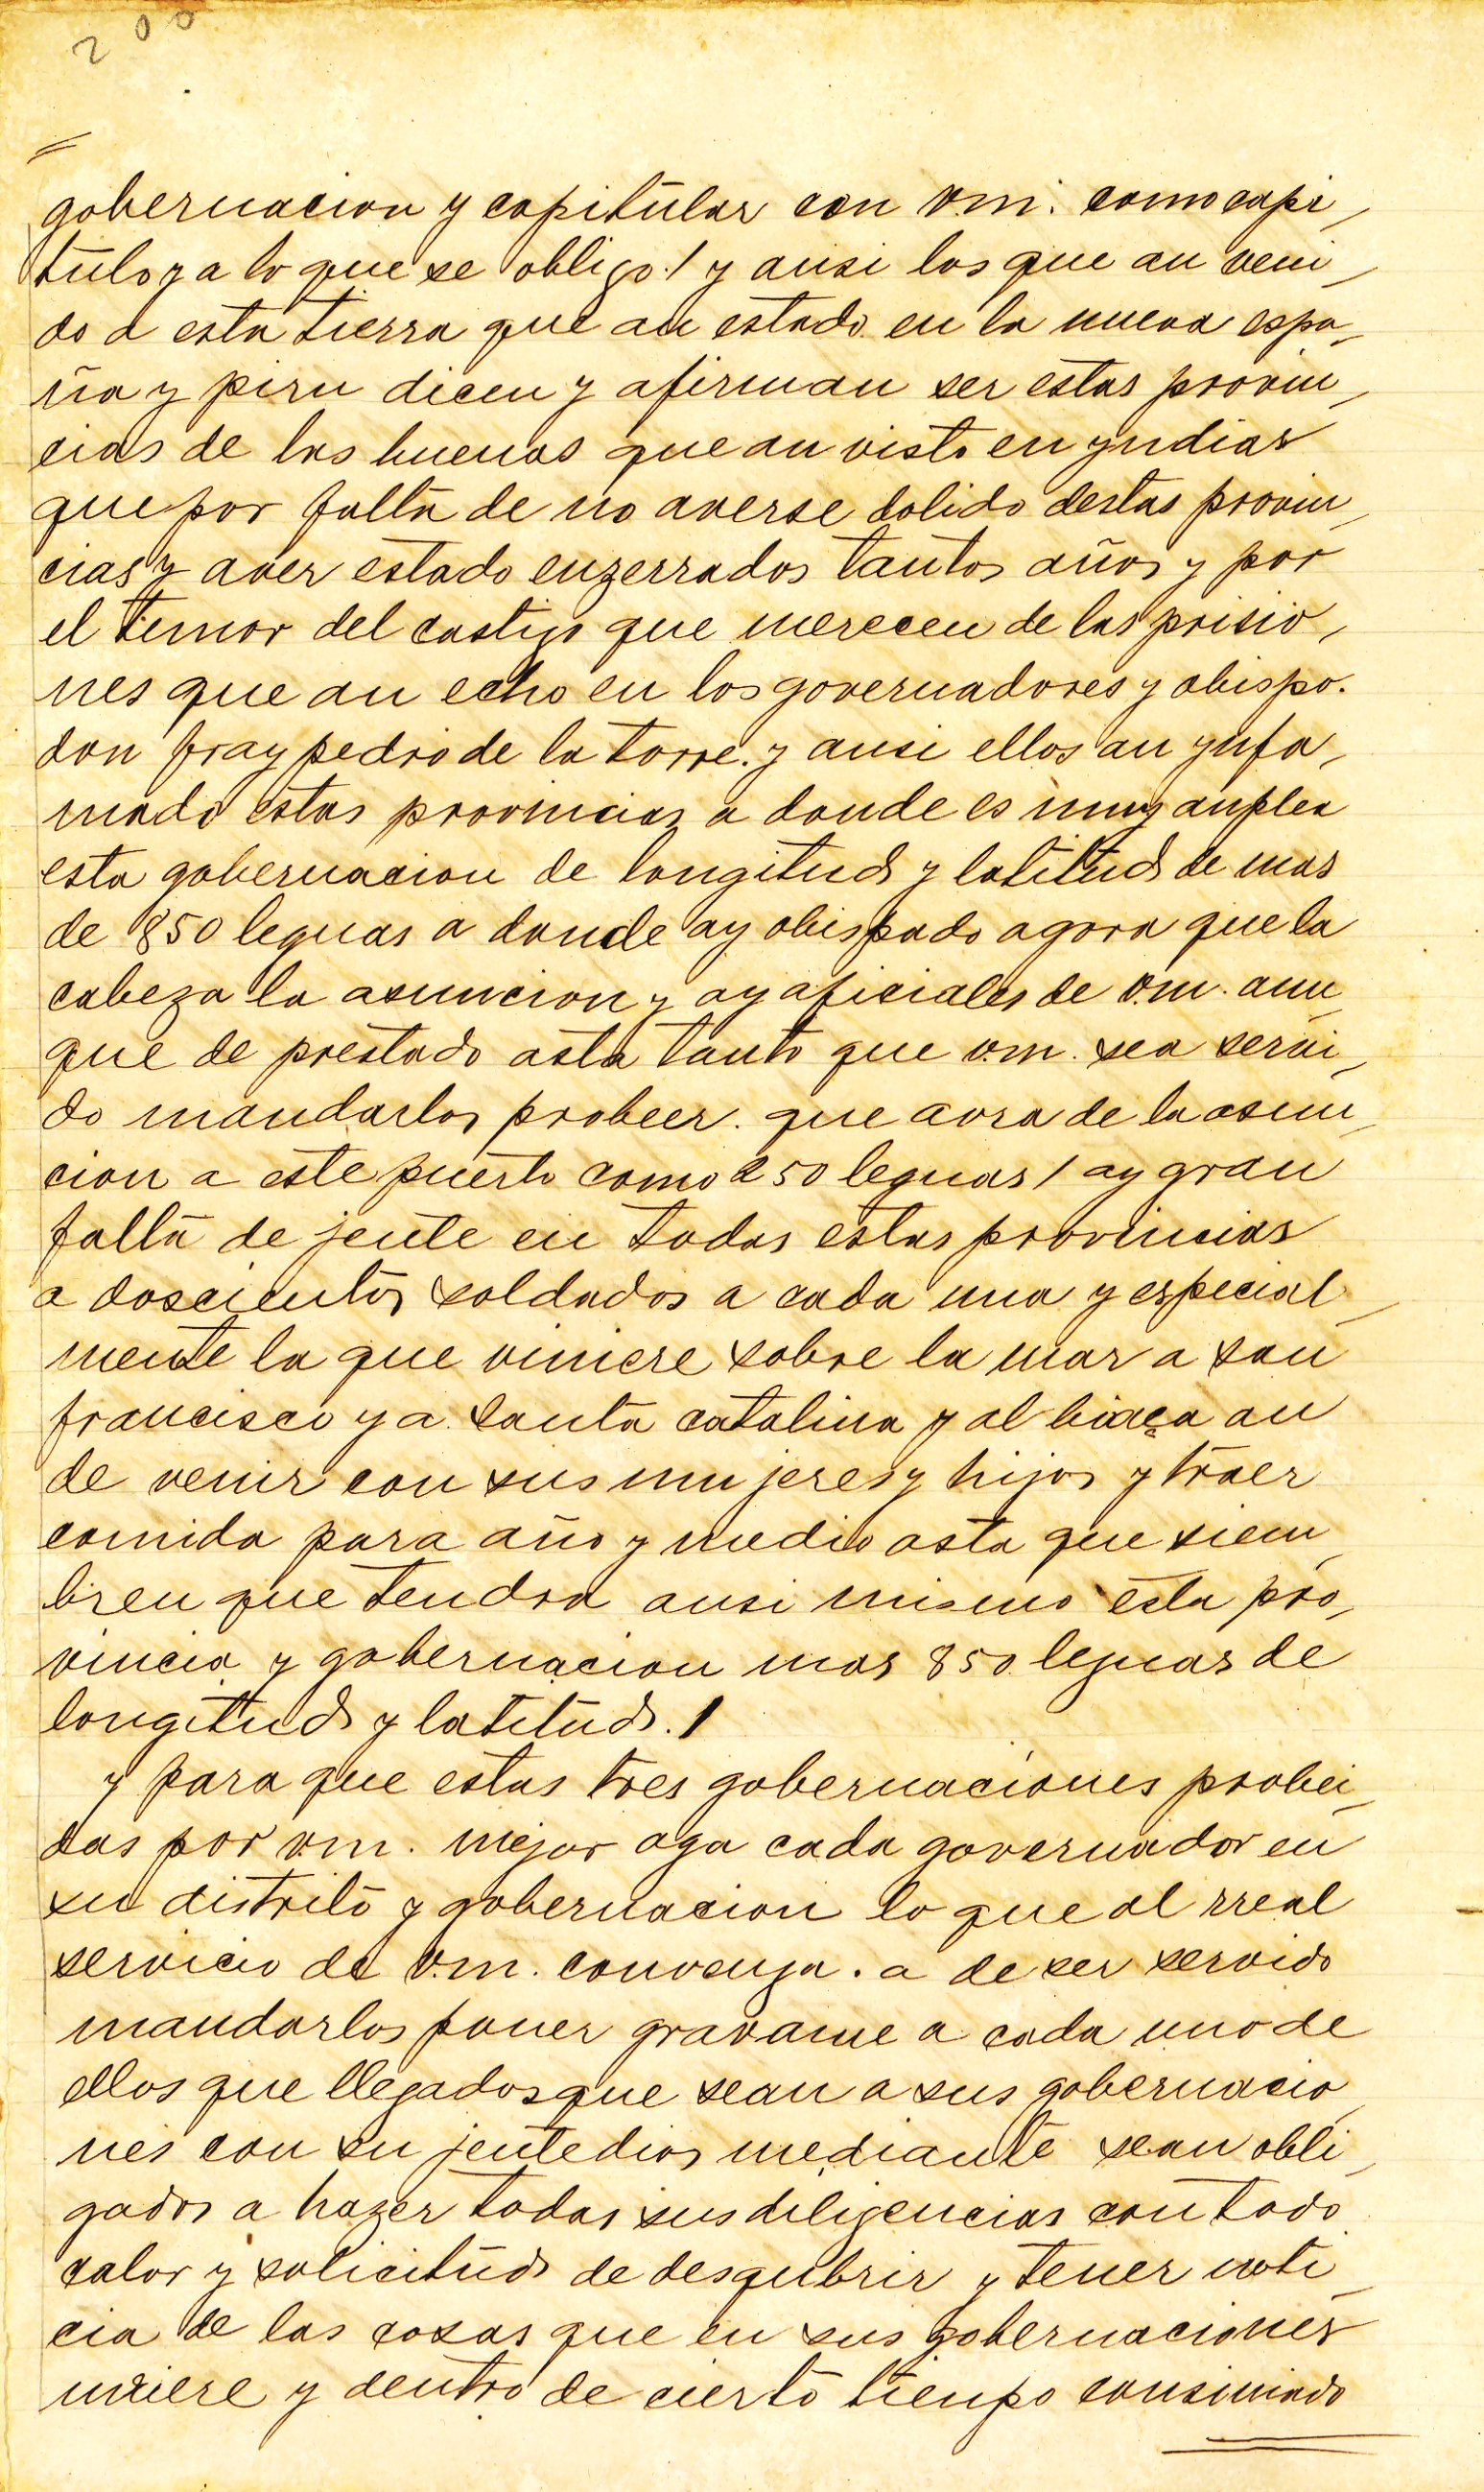 200
gobernacion y capitular con v.m. como capi
tulo y a lo que se obligo / y ansi los que an veni
do a esta tierra que an estado en la nueva espa
ña y piru dicen y afirman ser estas provin
cias de las buenas que an visto en yndias
que por falta de no averse dolido destas provin
cias y aver estado enzerrados tantos años y por
el temor del castigo que merecen de las prisio
nes que an echo en los governadores y obispo.
don fray pedro de la torre. y ansi ellos an ynfa
mado estas provincias a donde es muy anplea
esta gobernacion de longitud y latitud de mas
de 850 leguas a donde ay obispado agora que la
cabeza la asuncion y ay oficiales de v.m. aun
que de prestado asta tanto que v.m. sea servi
do mandarlos probeer. que avra de la asun
cion a este puerto como 250 leguas / ay gran
falta de jente en todas estas provincias
a doscientos soldados a cada una y especial
mente la que viniere sobre la mar a san
francisco y a santa catalina y al biaça an
de venir con sus mujeres y hijos y traer
comida para año y medio asta que siem
bren que tendra ansi mismo esta pro
vincia y gobernacion mas 850 leguas de
longitud y latitud. /
y para que estas tres gobernaciones probei
das por v.m. mejor aga cada governador en
su distrito y gobernacion lo que al rreal
servicio de v.m. convenga. a de ser servido
mandarlos poner gravame a cada uno de
ellos que llegados que sean a sus gobernacio
nes con su jente dios mediante sean obli
gados a hazer todas sus diligencias con todo
calor y solicitud de desqubrir y tener noti
cia de las cosas que en sus gobernaciones
uviere y dentro de cierto tienpo consiniado